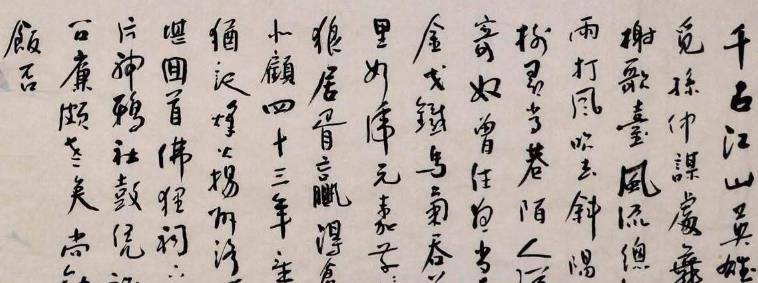 千古江山英雄
覓孫仲謀處舞
榭歌臺風流總
雨打風吹去斜陽
樹尋常巷陌人
寄奴曾住想當
金戈鐵馬氣吞
里如虎元嘉草
狼居胥贏得倉
北顧四十三年
猶記烽火揚州路
堪回首佛狸祠下
片神鴉社鼓憑誰
問廉頗老矣尚能
飯否